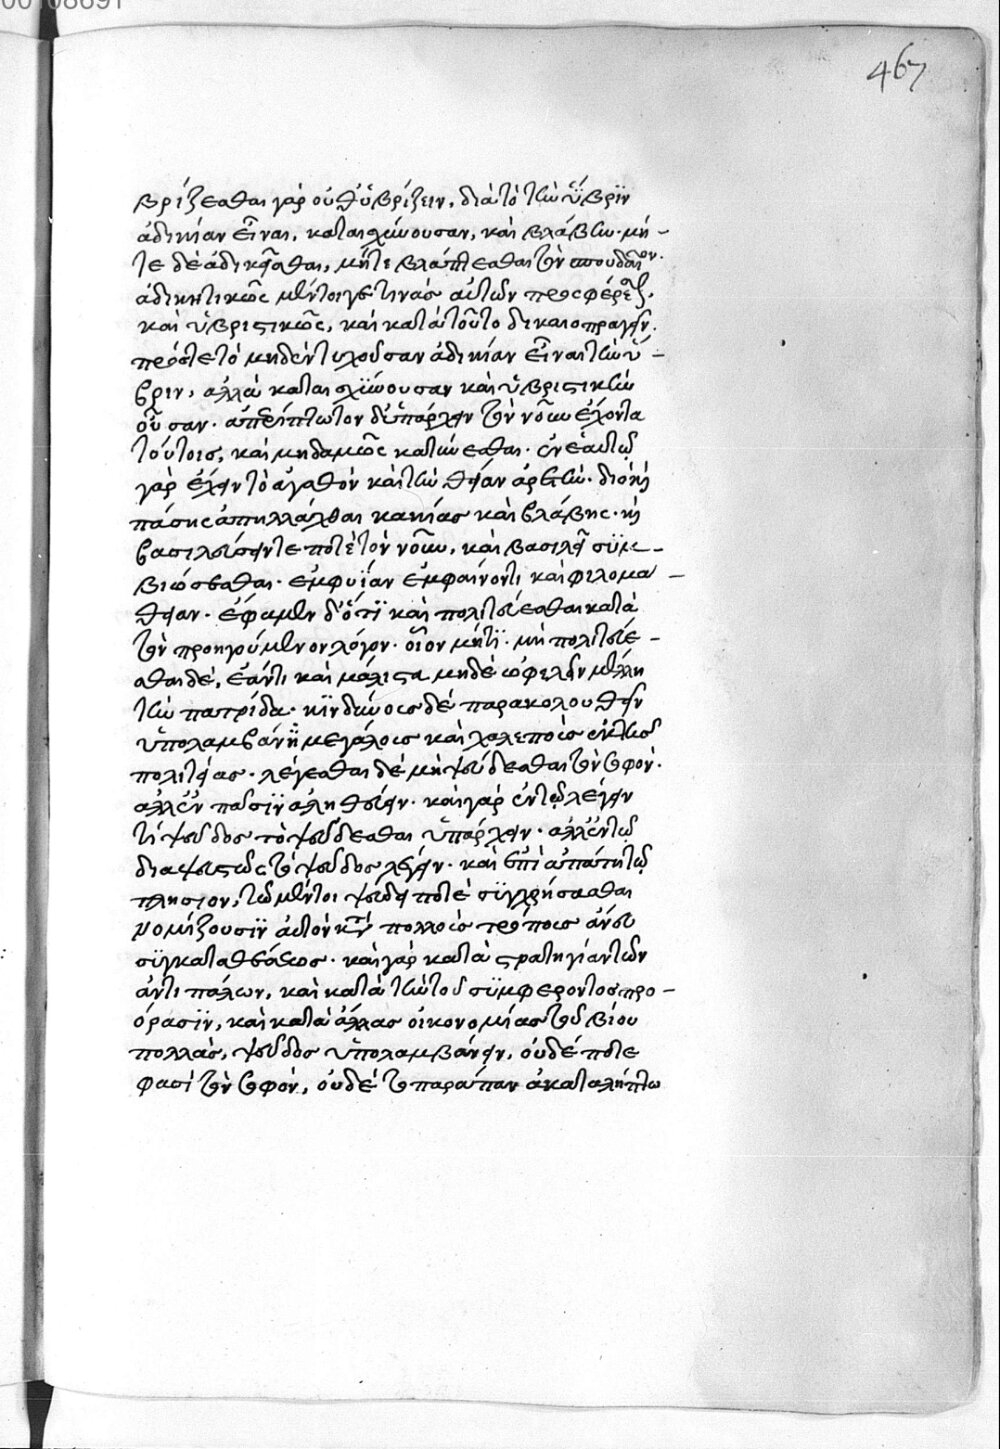 00108691
467
βρίζεσθαι γὰρ οὔθ' ὑβρίζειν, διὰ τὸ τὴν ὕβριν
ἀδικίαν εἶναι, καταισχύνουσαν, καὶ βλάβην· μή-
τε δὲ ἀδικεῖσθαι, μήτε βλάπτεσθαι τὸν σπουδαῖον.
ἀδικητικῶς μέντοιγε τινὰς αὐτῶν προσφέρεσθαι,
καὶ ὑβριστικῶς, καὶ κατὰ τοῦτο δικαιοπραγεῖν.
πρός τε τὸ μηδὲ τυχοῦσαν ἀδικίαν εἶναι τὴν ὕ-
βριν, ἀλλὰ καταισχύνουσαν καὶ ὑβριστικὴν
οὖσαν· ἀπερίπτωτον δ' ὑπάρχειν τὸν νοῦν ἔχοντα
τούτοις, καὶ μηδαμῶς καταισχύνεσθαι· ἐν ἑαυτῷ
γὰρ ἔχειν τὸ ἀγαθὸν καὶ τὴν θείαν ἀρετὴν· διὸ καὶ
πάσης ἀπηλλάχθαι κακίας καὶ βλάβης· καὶ
βασιλεύσειν τε ποτὲ τὸν νοῦν, καὶ βασιλεῖ συμ-
βιώσεσθαι· εὐφυΐαν ἐμφαίνοντι καὶ φιλομά-
θειαν· ἔφαμεν δ' ὅτι καὶ πολιτεύεσθαι κατὰ
τὸν προηγούμενον λόγον· οἷον μήτι· μὴ πολιτεύε-
σθαι δέ, ἐάν τι καὶ μάλιστα μηδὲν ὠφελεῖν μέλλη
τὴν πατρίδα· κινδύνους δὲ παρακολουθεῖν
ὑπολαμβάνῃ μεγάλους καὶ χαλεποὺς ἐκ τῆς
πολιτείας· λέγεσθαι δὲ μὴ ψεύδεσθαι τὸν σοφόν·
ἀλλ' ἐν πᾶσιν ἀληθεύειν· καὶ γὰρ ἐν τῷ λέγειν
τι ψεῦδος τὸ ψεύδεσθαι ὑπάρχειν· ἀλλ' ἐν τῷ
διαψευστῶς τὸ ψεῦδος λέγειν· καὶ ἐπὶ ἀπάτῃ τῶ
πλησίον, τῷ μέντοι ψεύδει ποτὲ συγχρήσασθαι
νομίζουσιν αὐτὸν κατὰ πολλοὺς τρόπους ἄνευ
συγκαταθέσεως· καὶ γὰρ κατὰ στρατηγίαν τῶν
ἀντιπάλων, καὶ κατὰ τὴν τοῦ συμφέροντος προ-
όρασιν, καὶ κατ' ἄλλας οἰκονομίας τοῦ βίου
πολλὰς, ψεῦδος ὑπολαμβάνειν, οὐδέ ποτε
φασὶ τὸν σοφόν, οὐδὲ τὸ παράπαν ἀκαταλήπτω